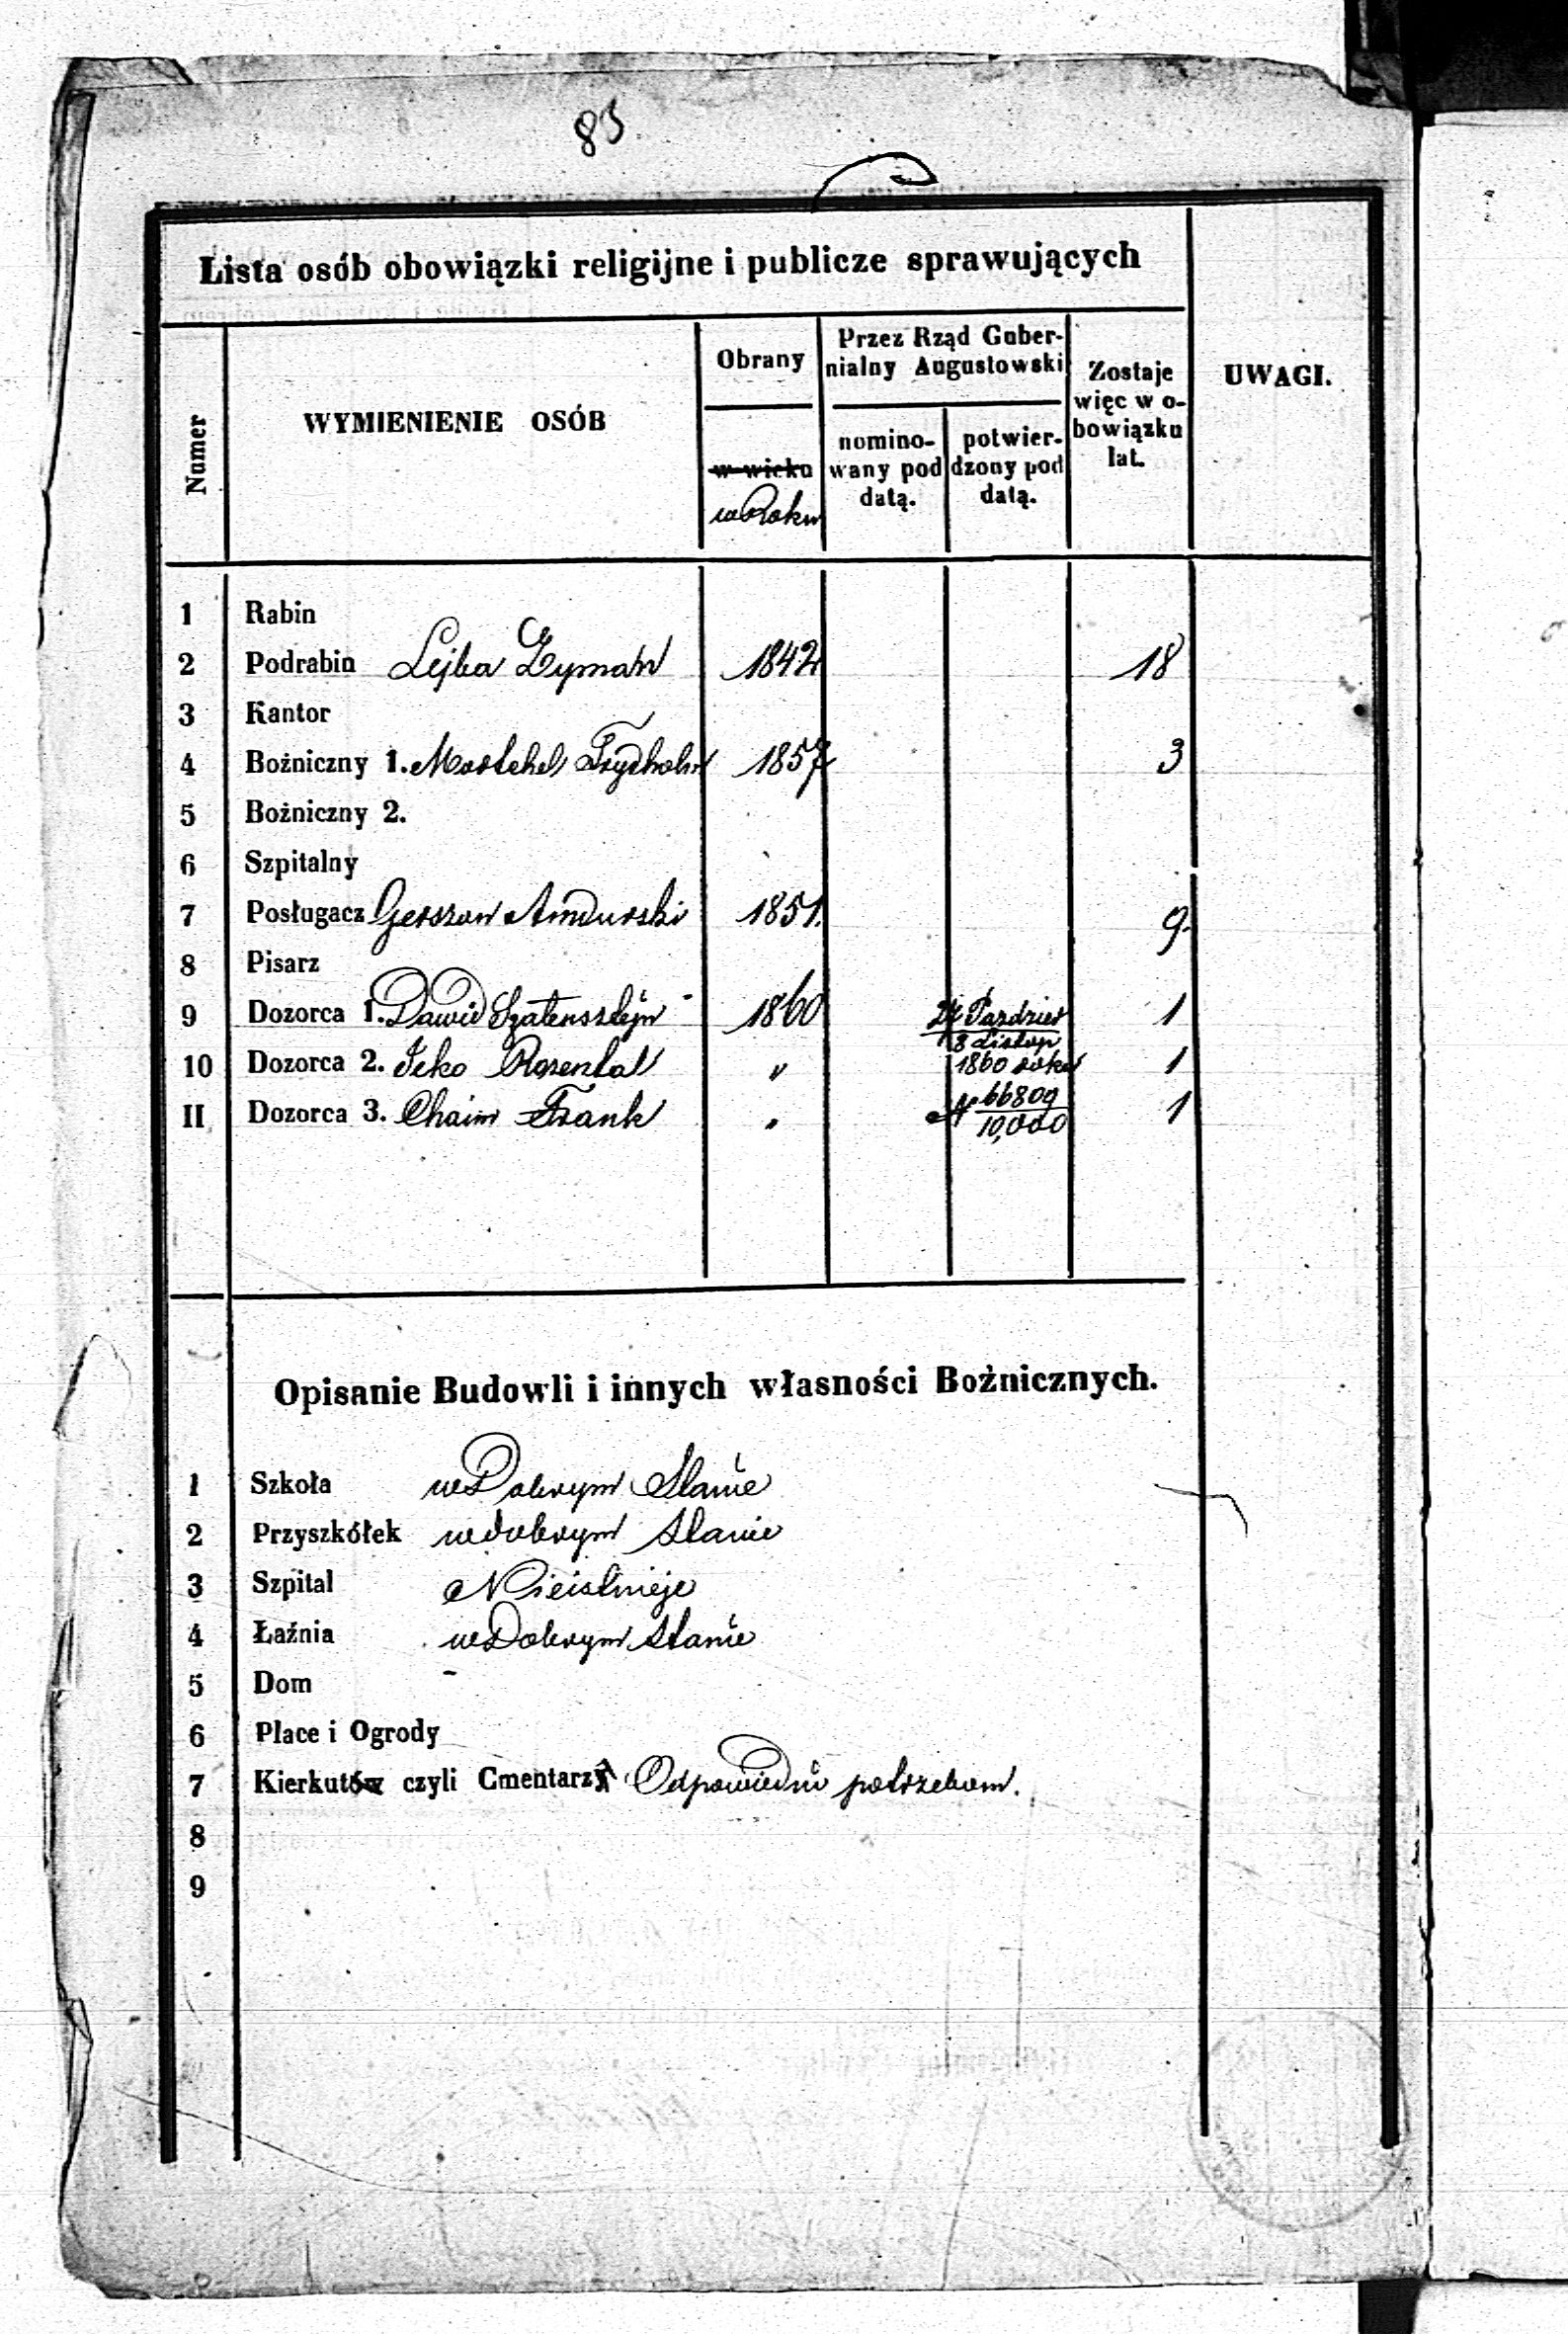 85
Lista osób obowiązki religijne i publicze sprawujących
Numer
WYMIENIENIE OSÓB
Obrany
w wieku
w Roku
Przez Rząd Guber-
nialny Augustowski
nomino-
wany pod
datą.
potwier-
dzony pod
datą.
Zostaje
więc w o-
bowiązku
lat.
UWAGI.
1 Rabin
2 Podrabin Lejba Zyman 1842 18
3 Kantor
4 Bożniczny 1. 1857 3
5 Bożniczny 2.
6 Szpitalny
7 Posługacz Gerszon Amdurski 1851. 9
8 Pisarz
9 Dozorca 1. Dawid Szatensztejn 1860 Pazdzier 1
8 Listop
10 Dozorca 2. Icko Rozental " 1860 roku 1
II Dozorca 3. Chaim Frank " N 66809 1
10,000
Opisanie Budowli i innych własności Bożnicznych.
1 Szkoła w Dobrym Stanie
2 Przyszkółek w dobrym Stanie
3 Szpital Nieistnieje
4 Łaźnia w Dobrym Stanie
5 Dom -
6 Place i Ogrody
7 Kierkutów czyli Cmentarzy Odpowiedni potrzebom.
8
9